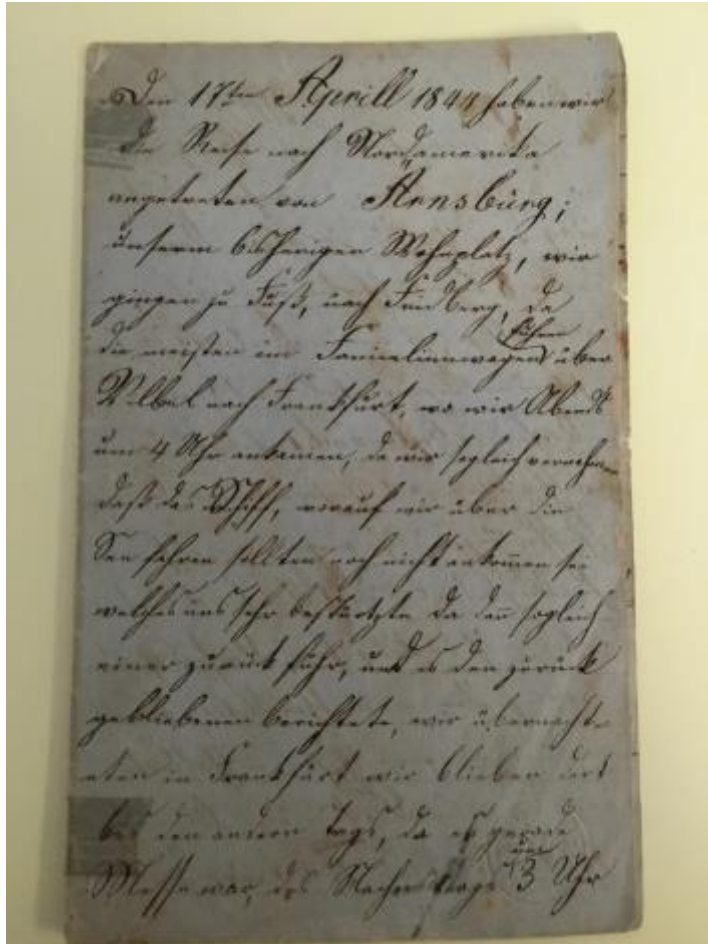 Den 17ten Aprill 1844 haben wir
die Reise nach Nordamerika
angetreten von Arnsburg;
unserm bisherigen Wohnplatz, wir
gingen zu Fuß, nach Friedberg, da
fuhren
die meisten im Familienwagen über
Vilbel nach Frankfurt, wo wir Abends
um 4 Uhr ankamen, da wir sogleich vernahmen
daß das Schiff, worauf wir über die
See fahren sollten noch nicht ankommen sei
welches uns sehr bestürtzte da dan sogleich
einer zurück fuhr, und es den zurück
gebliebenen berichtete, wir übernacht-
eten in Frankfurt wir blieben dort
bis den andern Tags, da es gerade
Messe war, des Nachmittags
um
3 Uhr